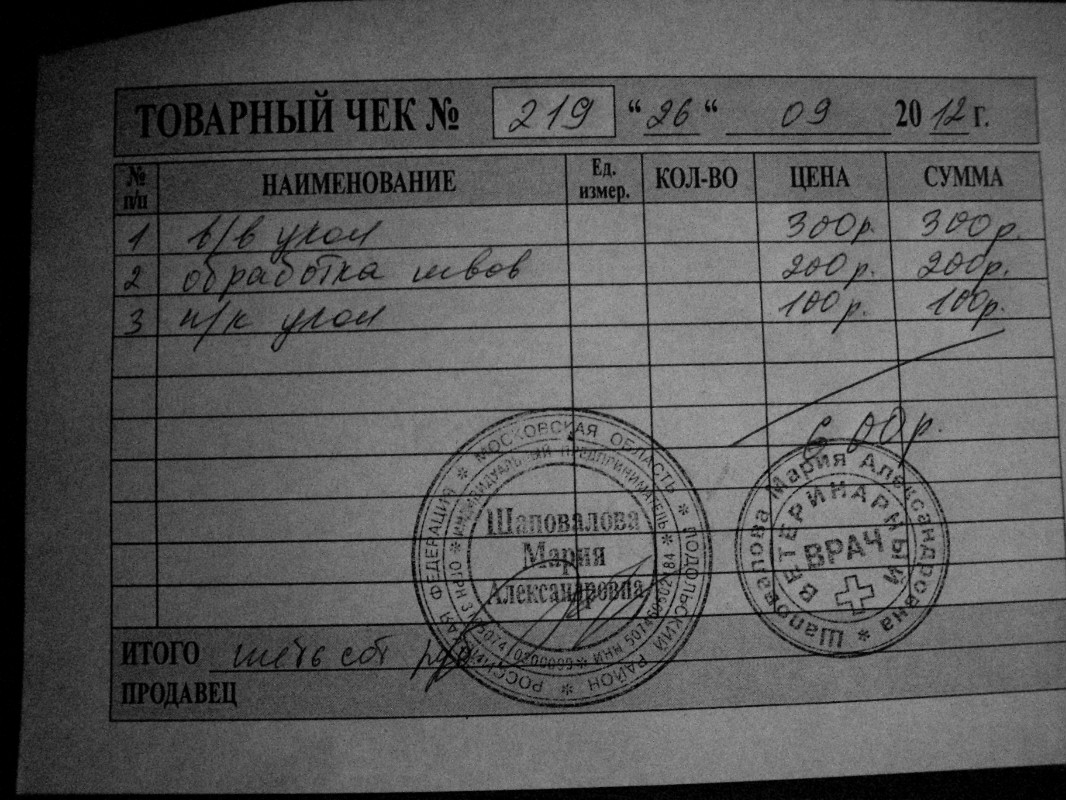 ТОВАРНЫЙ ЧЕК № 219 “26“ 09 2012 г.
№ п/п НАИМЕНОВАНИЕ Ед. измер. КОЛ-ВО ЦЕНА СУММА
1 в/в укол 300р. 300р.
2 обработка швов 200р. 200р.
3 п/к укол 100р. 100р.
600р.
РОССИЙСКАЯ ФЕДЕРАЦИЯ * МОСКОВСКАЯ ОБЛАСТЬ * ПОДОЛЬСКИЙ РАЙОН *
ИНДИВИДУАЛЬНЫЙ ПРЕДПРИНИМАТЕЛЬ *
Шаповалова
Мария
Александровна
Шаповалова Мария Александровна *
ВЕТЕРИНАРНЫЙ
ВРАЧ
ИТОГО шесть сот руб
ПРОДАВЕЦ